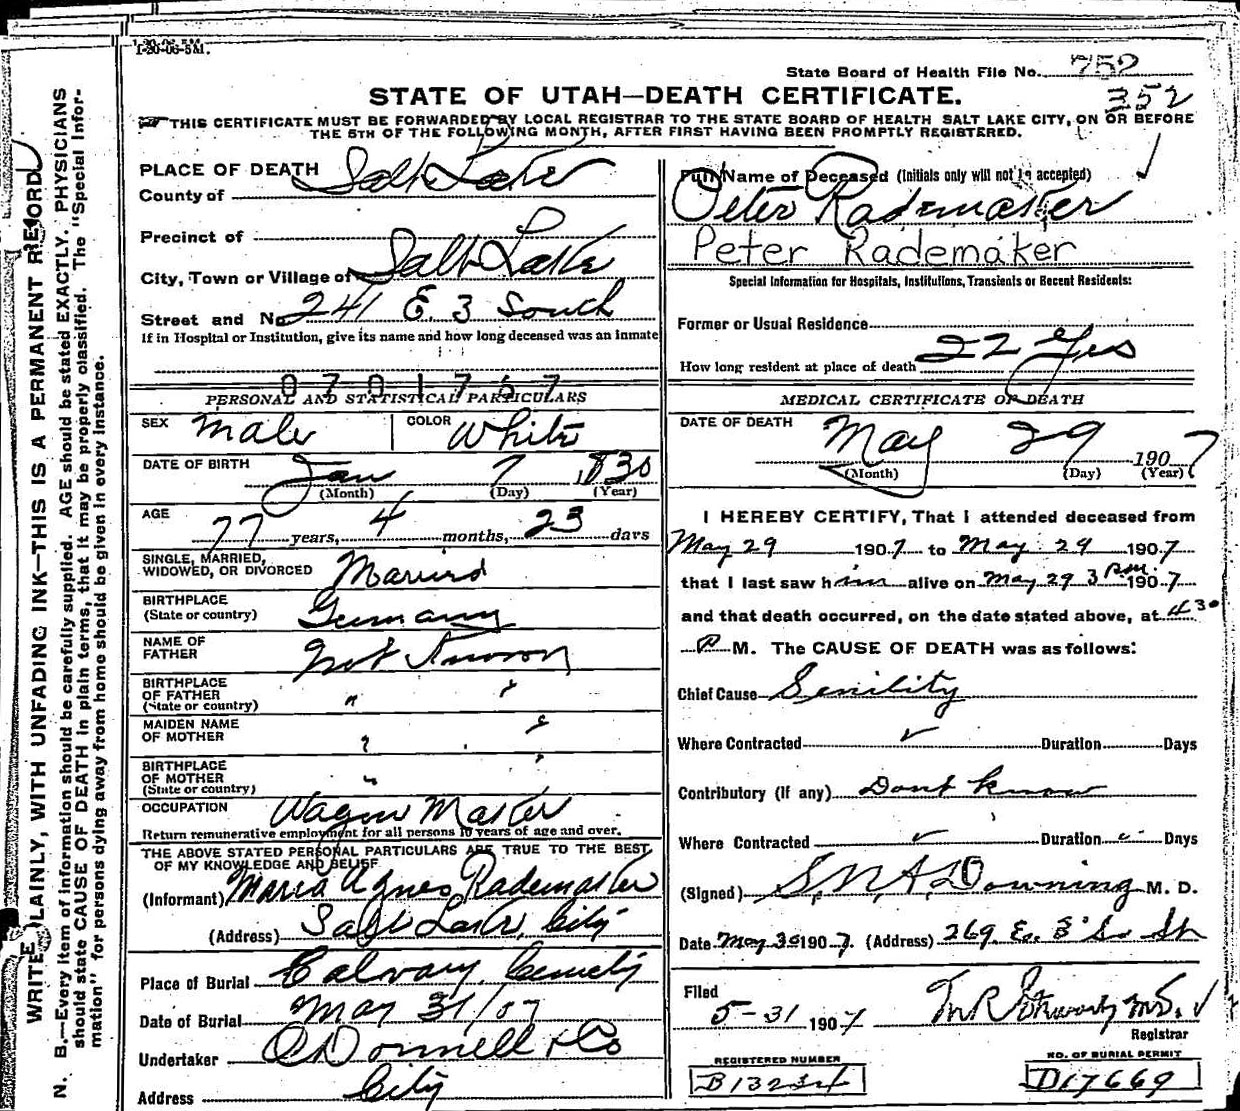 1-20-06-5M.
State Board of Health File No. 752
352
STATE OF UTAH—DEATH CERTIFICATE.
THIS CERTIFICATE MUST BE FORWARDED BY LOCAL REGISTRAR TO THE STATE BOARD OF HEALTH SALT LAKE CITY, ON OR BEFORE
THE 5TH OF THE FOLLOWING MONTH, AFTER FIRST HAVING BEEN PROMPTLY REGISTERED.
WRITE PLAINLY, WITH UNFADING INK—THIS IS A PERMANENT RECORD
N. B.—Every item of information should be carefully supplied. AGE should be stated EXACTLY. PHYSICIANS
should state CAUSE OF DEATH in plain terms, that it may be properly classified. The "Special Infor-
mation" for persons dying away from home should be given in every instance.
PLACE OF DEATH
County of Salt Lake
Precinct of
City, Town or Village of Salt Lake
Street and No. 241 E. 3 South
If in Hospital or Institution, give its name and how long deceased was an inmate
0701767
PERSONAL AND STATISTICAL PARTICULARS
SEX Male COLOR White
DATE OF BIRTH Jan 7 1830
(Month) (Day) (Year)
AGE 77 years, 4 months, 23 days
SINGLE, MARRIED,
WIDOWED, OR DIVORCED Married
BIRTHPLACE
(State or country) Germany
NAME OF
FATHER Not Known
BIRTHPLACE
OF FATHER
(State or country) " "
MAIDEN NAME
OF MOTHER
BIRTHPLACE
OF MOTHER
(State or country)
OCCUPATION Wagon Maker
Return remunerative employment for all persons 10 years of age and over.
THE ABOVE STATED PERSONAL PARTICULARS ARE TRUE TO THE BEST
OF MY KNOWLEDGE AND BELIEF
(Informant) Maria Agnes Rademaker
(Address) Salt Lake City
Place of Burial Calvary Cemetery
Date of Burial May 31/07
Undertaker O'Donnell & Co
Address City
Full Name of Deceased (Initials only will not be accepted)
Peter Rademaker
Peter Rademaker
Special Information for Hospitals, Institutions, Transients or Recent Residents:
Former or Usual Residence
How long resident at place of death 22 Yrs
MEDICAL CERTIFICATE OF DEATH
DATE OF DEATH May 29 1907
(Month) (Day) (Year)
I HEREBY CERTIFY, That I attended deceased from
May 29 1907 to May 29 1907
that I last saw him alive on May 29 3 P.M. 1907
and that death occurred, on the date stated above, at 4 30
P M. The CAUSE OF DEATH was as follows:
Chief Cause Senility
Where Contracted Duration Days
Contributory (If any) Dont Know
Where Contracted Duration Days
(Signed) Downing M. D.
Date May 30 1907. (Address) 269 E. 3 So St
Filed
5-31 1907
Registrar
REGISTERED NUMBER
B13234
NO. OF BURIAL PERMIT
D17669